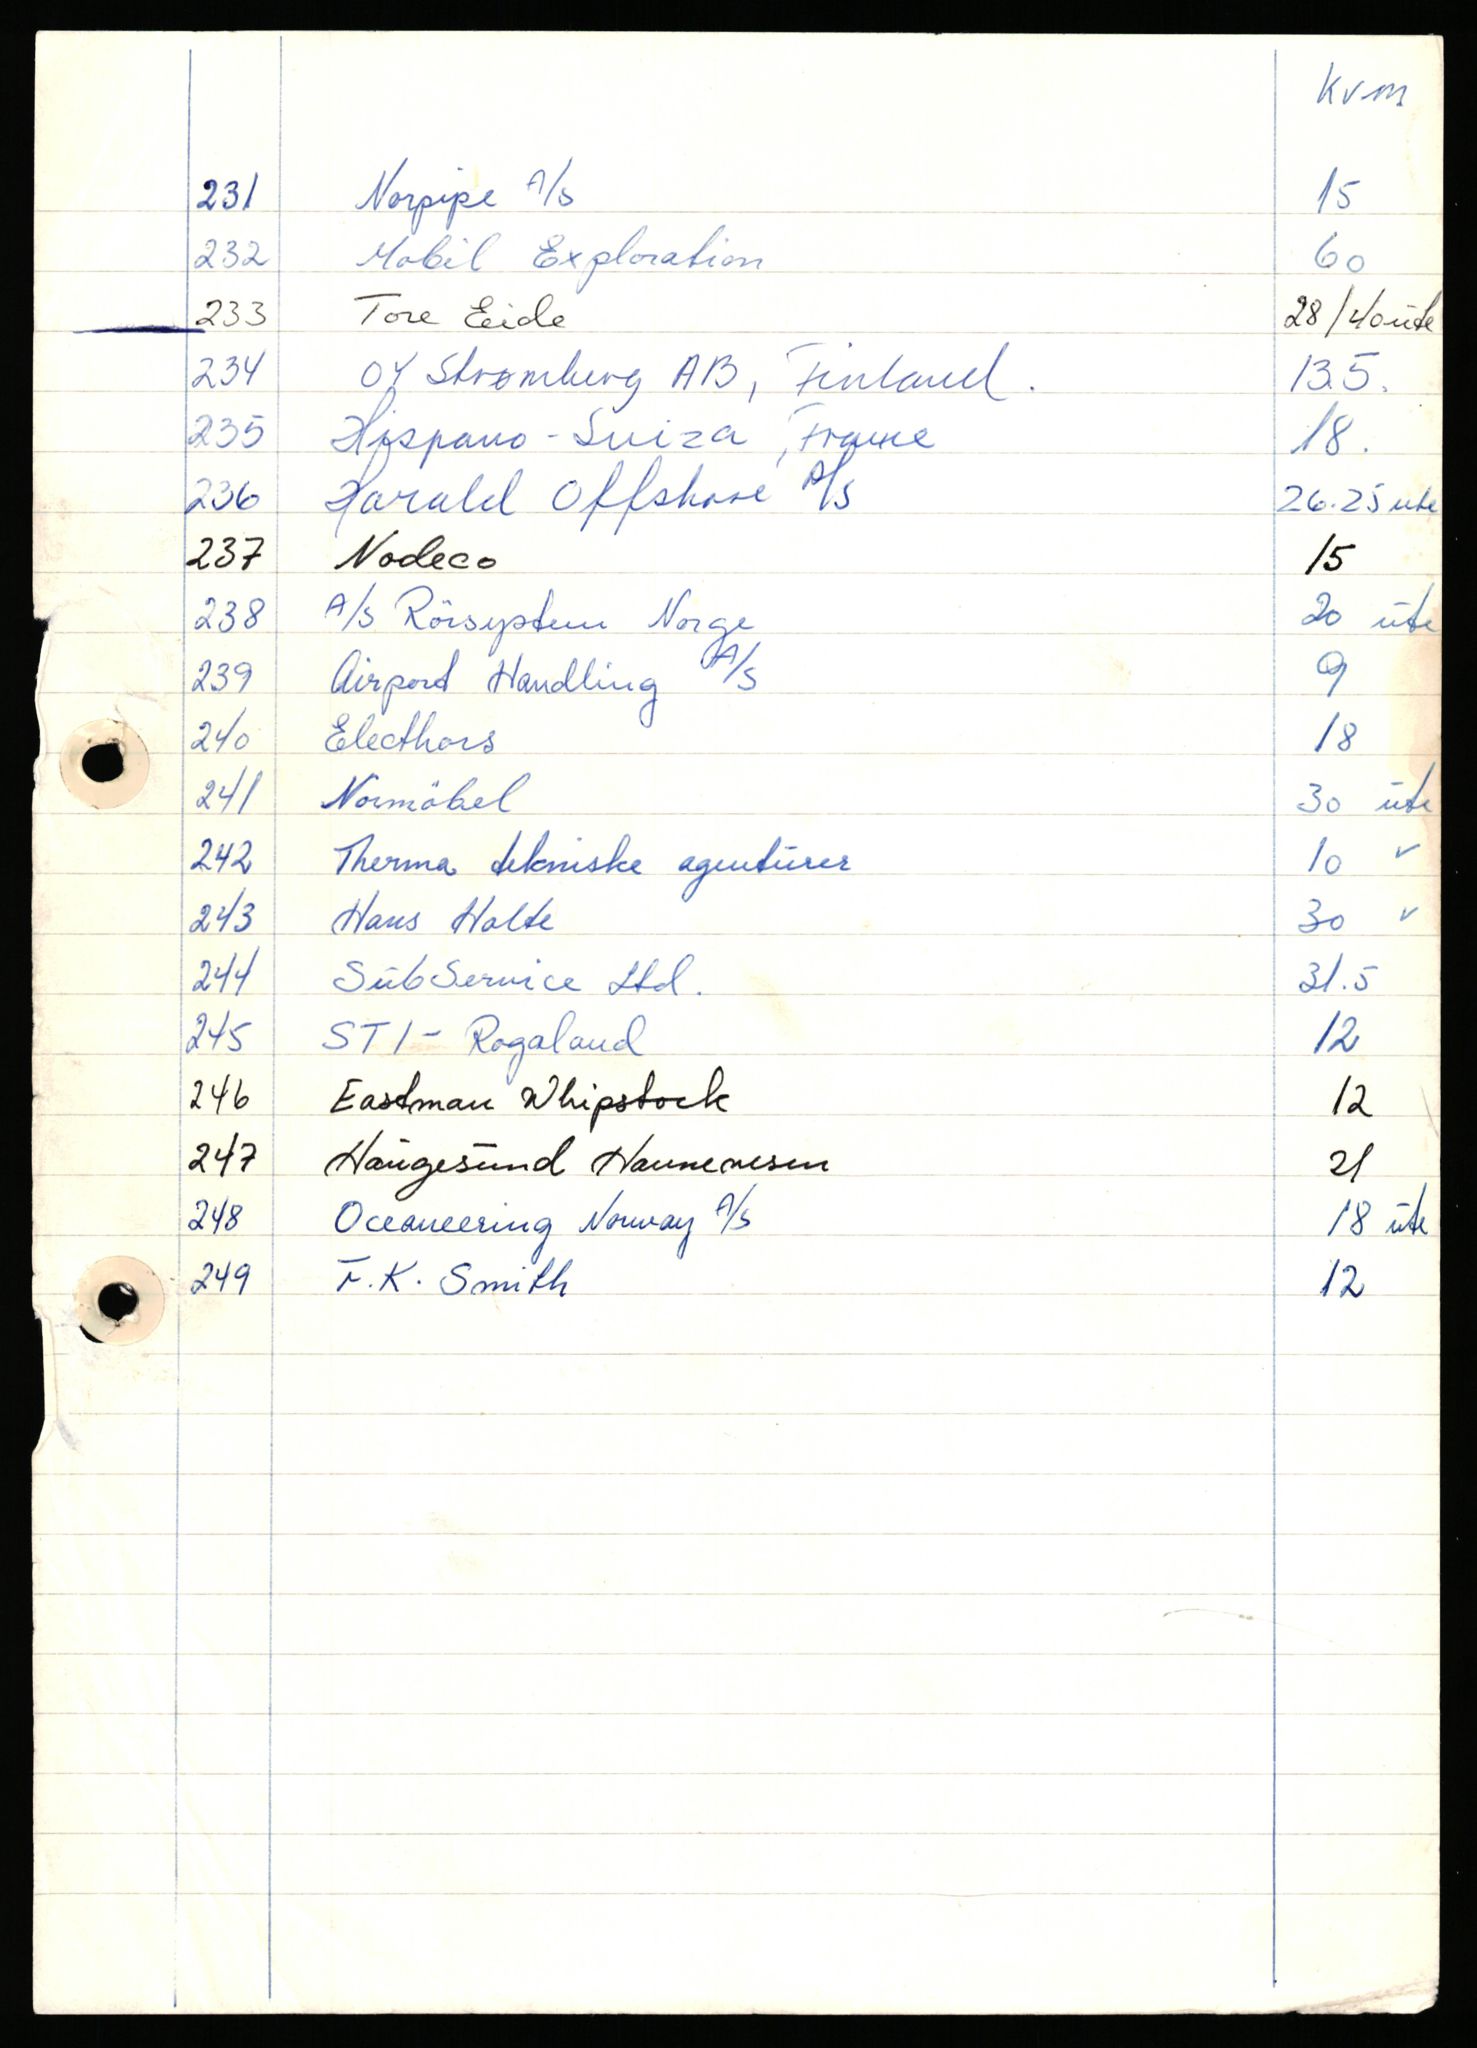 kvm
231 Norpipe A/S 15
232 Mobil Exploration 60
233 Tore Eide 28/40 ute
234 OY Stromberg AB, Finland. 13.5.
235 Hispano-Suiza, France 18.
236 Harald Offshore A/S 26.25 ute
237 Nodeco 15
238 A/S Rörsystem Norge 20 ute
239 Airport Handling A/S 9
240 Electhors 18
241 Normöbel 30 ute
242 Therma tekniske agenturer 10 v
243 Hans Holte 30 v
244 SubService Ltd. 31.5
245 STI - Rogaland 12
246 Eastman Whipstock 12
247 Haugesund 21
248 Oceaneering Norway A/S 18 ute
249 F.K. Smith 12